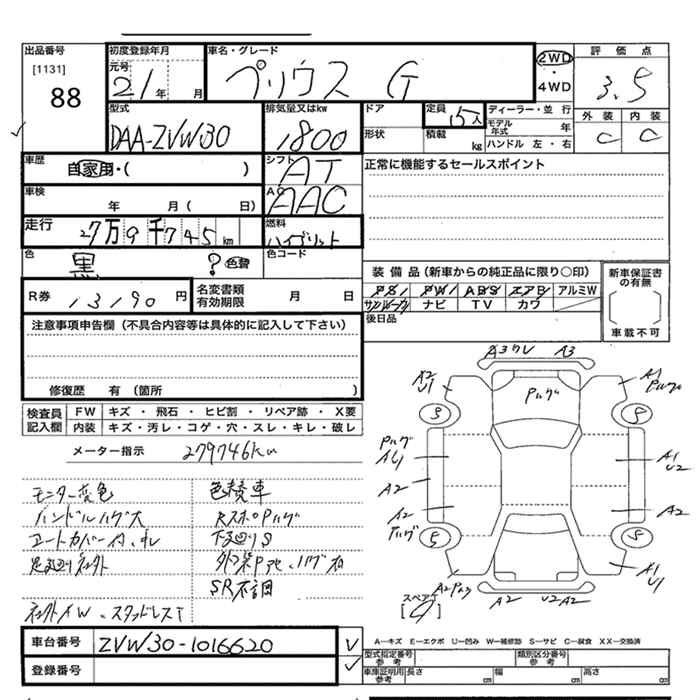 出品番号
[1131]
88
初度登録年月
元号
21年 月
車名・グレード
プリウス G
2WD
・
4WD
評価点
3.5
外装 内装
C C
型式
DAA-ZVW30
排気量又はkw
1800
ドア
形状
定員
5人
積載
kg
ディーラー・並行
モデル年式 年
ハンドル 左・右
車歴
自家用・( )
シフト
AT
正常に機能するセールスポイント
車検
年 月( 日)
AC
AAC
走行
27万9千745km
燃料
ハイブリット
色
黒
? 色替
色コード
R券 13190円
名変書類有効期限 月 日
装備品(新車からの純正品に限り○印)
PS PW ABS エアB アルミW
サンルーフ ナビ TV カワ
新車保証書の有無
車載不可
後日品
注意事項申告欄(不具合内容等は具体的に記入して下さい)
修復歴 有(箇所 )
検査員記入欄
FW キズ・飛石・ヒビ割・リペア跡・X要
内装 キズ・汚レ・コゲ・穴・スレ・キレ・破レ
メーター指示 279746km
モニター変色
色替車
ハンドルハゲ大
シートカバー付、キレ
下廻りS
SR不言周
社外AW、スタッドレスT
A3ワレ A3
A2
U1
Pハゲ
A1
Pハゲ
S S
Pハゲ
AU1
A1
U2
A2
A2
A2
S S
A2 Pハゲ
A2 U2 A2
A1
U1
スペアT
車台番号 ZVW30-1016620
登録番号
A―キズ E―エクボ U―凹み W―補修跡 S―サビ C―腐食 XX―交換済
型式指定番号参考
類別区分番号参考
車庫証明用参考 長さ cm 幅 cm 高さ cm